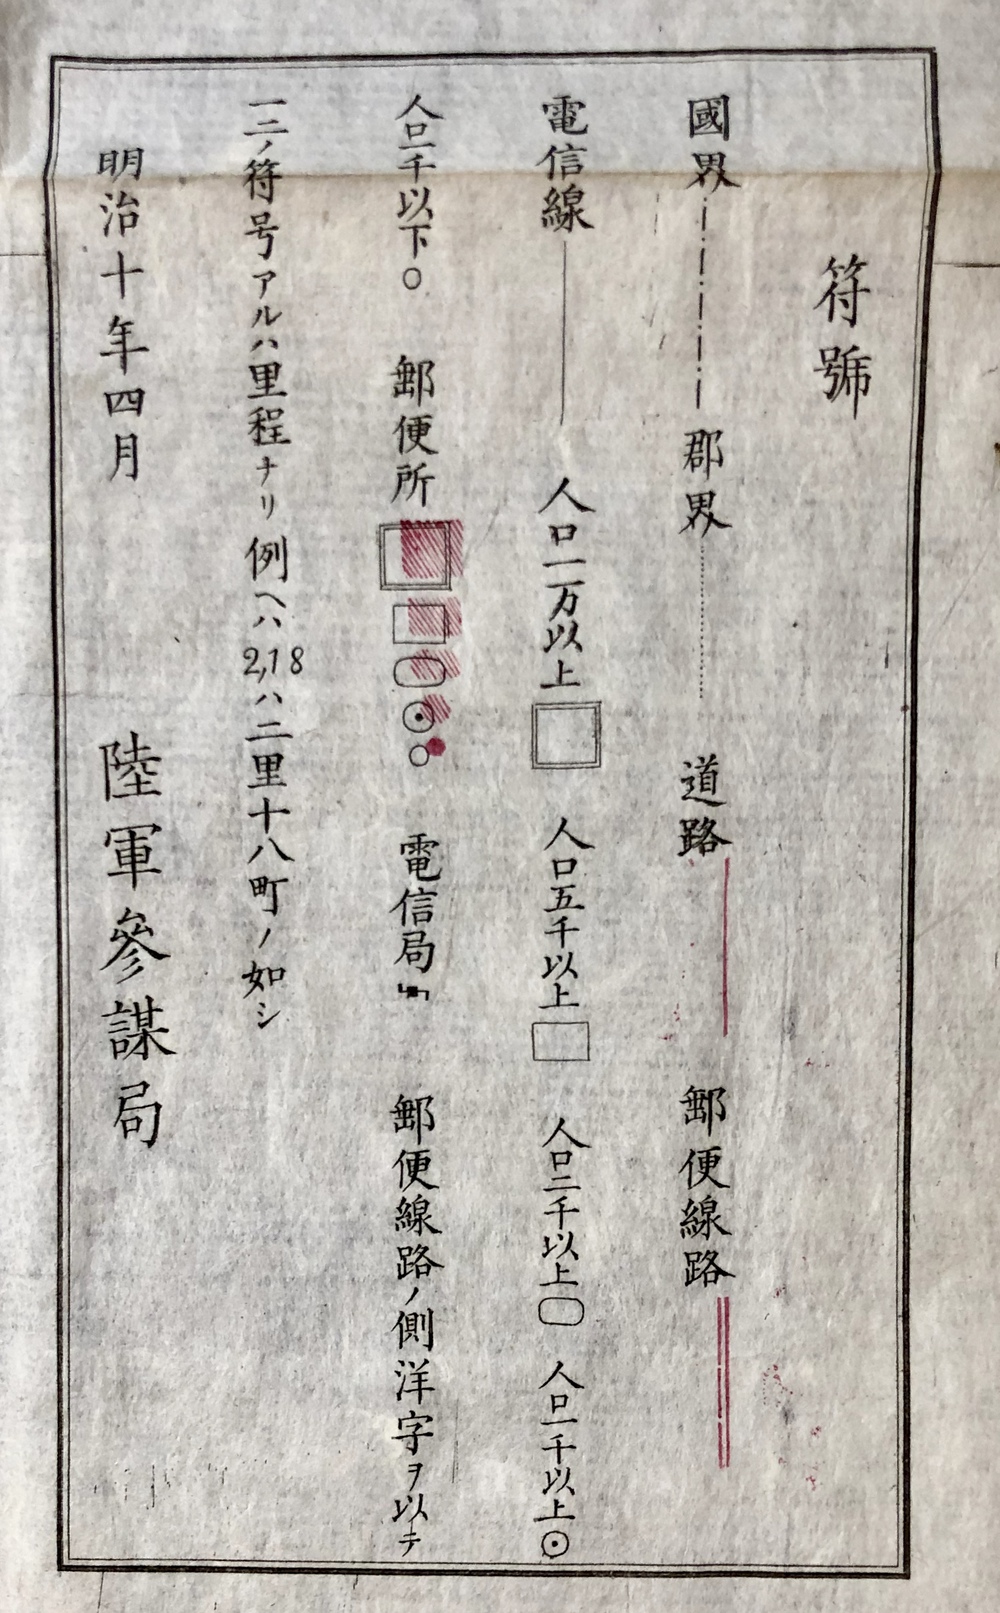 符號
國界 郡界 道路 郵便線路
電信線 人口一万以上 人口五千以上 人口二千以上 人口一千以上
人口一千以下 郵便所 電信局 郵便線路ノ側洋字ヲ以テ
一二ノ符号アルハ里程ナリ 例ヘハ2,18ハ二里十八町ノ如シ
明治十年四月 陸軍參謀局